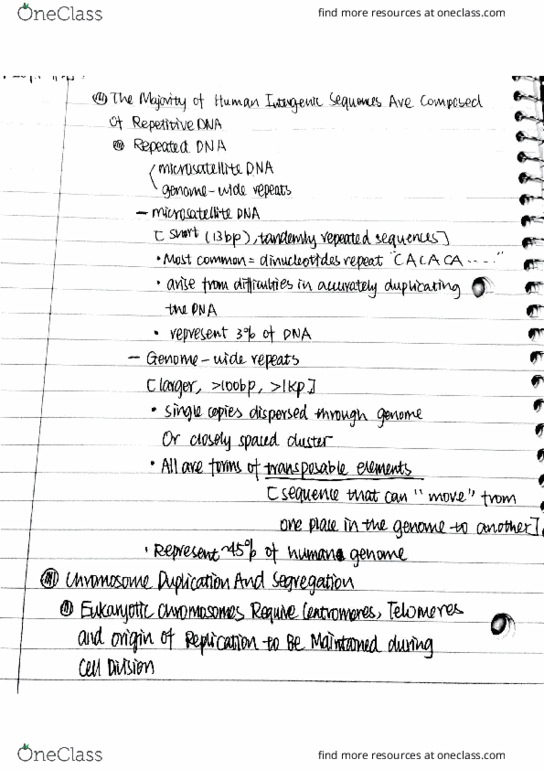 OneClass
find more resources at oneclass.com
The Majority of Human Intergenic Sequences Are Composed
Of Repetitive DNA
Repeated DNA
microsatellite DNA
genome-wide repeats
- microsatellite DNA
[short (13bp), tandemly repeated sequences]
• Most common = dinucleotides repeat "CACACA...."
• arise from difficulties in accurately duplicating
the DNA
• represent 3% of DNA
- Genome-wide repeats
[larger, >100bp, >1kp]
• single copies dispersed through genome
Or closely spaced cluster
• All are forms of transposable elements
[sequence that can "move" from
one place in the genome to another]
• Represent ~45% of human genome
Chromosome Duplication And Segregation
Eukaryotic Chromosomes Require Centromeres, Telomeres
and origin of Replication to Be Maintained during
Cell Division
OneClass
find more resources at oneclass.com